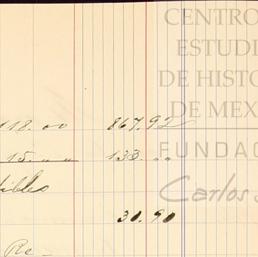 CENTRO
ESTUDI
DE HISTO
DE MEX
FUNDAC
Carlos S
118.00 867.92
15. 133
30.90
Re